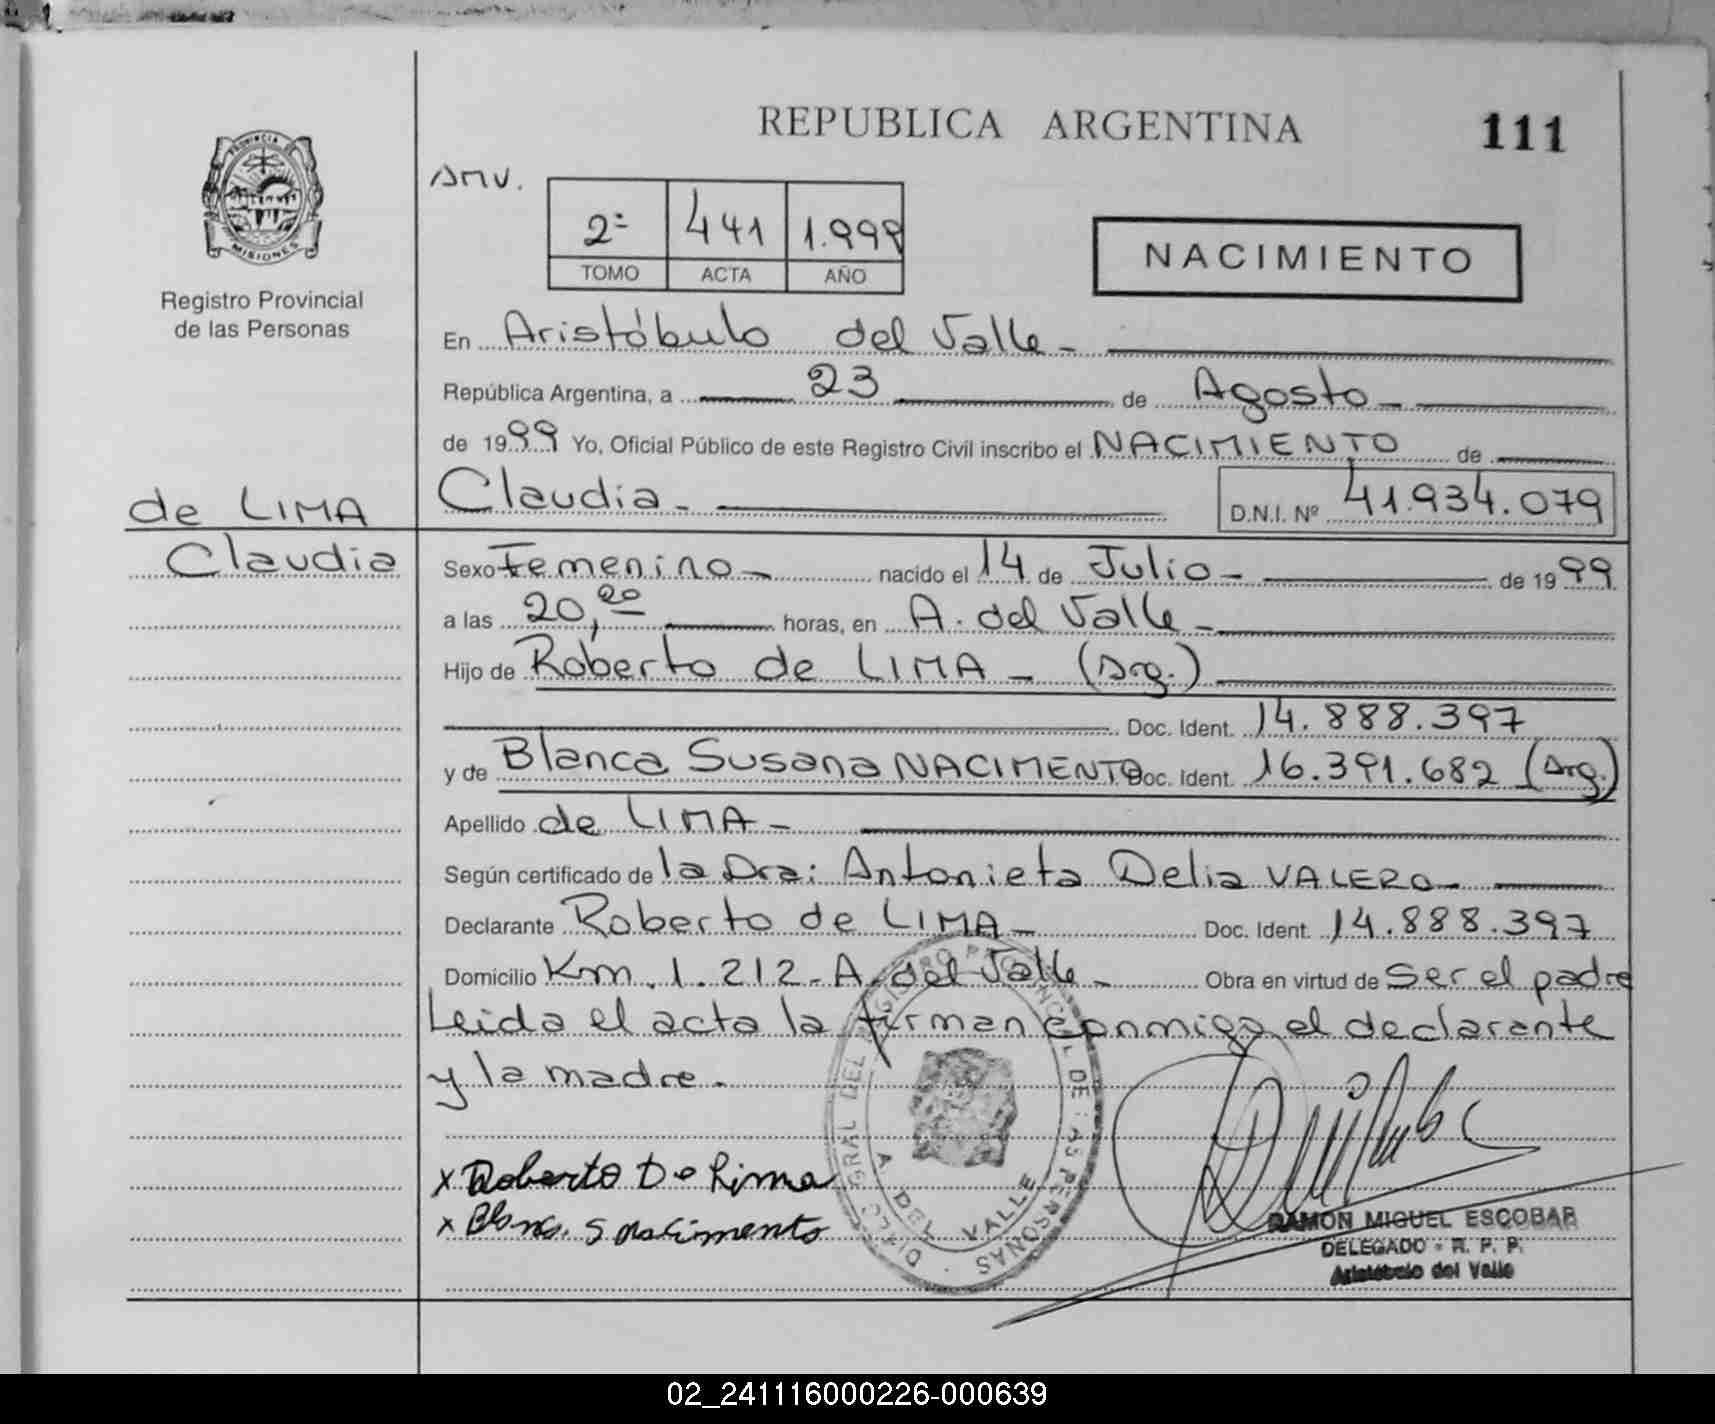 REPUBLICA ARGENTINA
111
PROVINCIA DE
MISIONES
Registro Provincial
de las Personas
AMV.
2ª 441 1.999
TOMO ACTA AÑO
NACIMIENTO
En Aristóbulo del Valle -
República Argentina, a 23 de Agosto -
de 1999 Yo, Oficial Público de este Registro Civil inscribo el NACIMIENTO de
de LIMA
Claudia
Claudia - D.N.I. Nº 41.934.079
Sexo Femenino - nacido el 14 de Julio - de 1999
a las 20,20 horas, en A. del Valle -
Hijo de Roberto de LIMA - (Arg.)
Doc. Ident. 14.888.397
y de Blanca Susana NACIMENTO Doc. Ident. 16.391.682 (Arg.)
Apellido de LIMA -
Según certificado de la Dra: Antonieta Delia VALERO -
Declarante Roberto de LIMA - Doc. Ident. 14.888.397
Domicilio Km. 1.212 - A. del Valle - Obra en virtud de Ser el padre
Leida el acta la firman conmigo el declarante
y la madre.
x Roberto De Lima
x Blnca. S nascimento
A. DEL VALLE
RAMON MIGUEL ESCOBAR
DELEGADO - R. P. P.
Aristóbulo del Valle
02_241116000226-000639